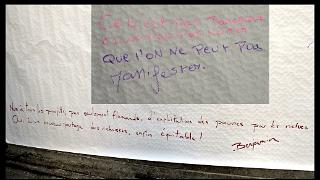 C'est pas parce
QUE L'ON NE PEUT PAS
Manifester.
Non à tous les projets, pas seulement financiers, d'exploitation des pauvres par les riches
Oui à un nouveau partage des richesses, enfin équitable !
Benjamin